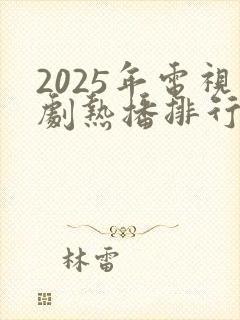 2025年電視
劇熱播排行
林雷